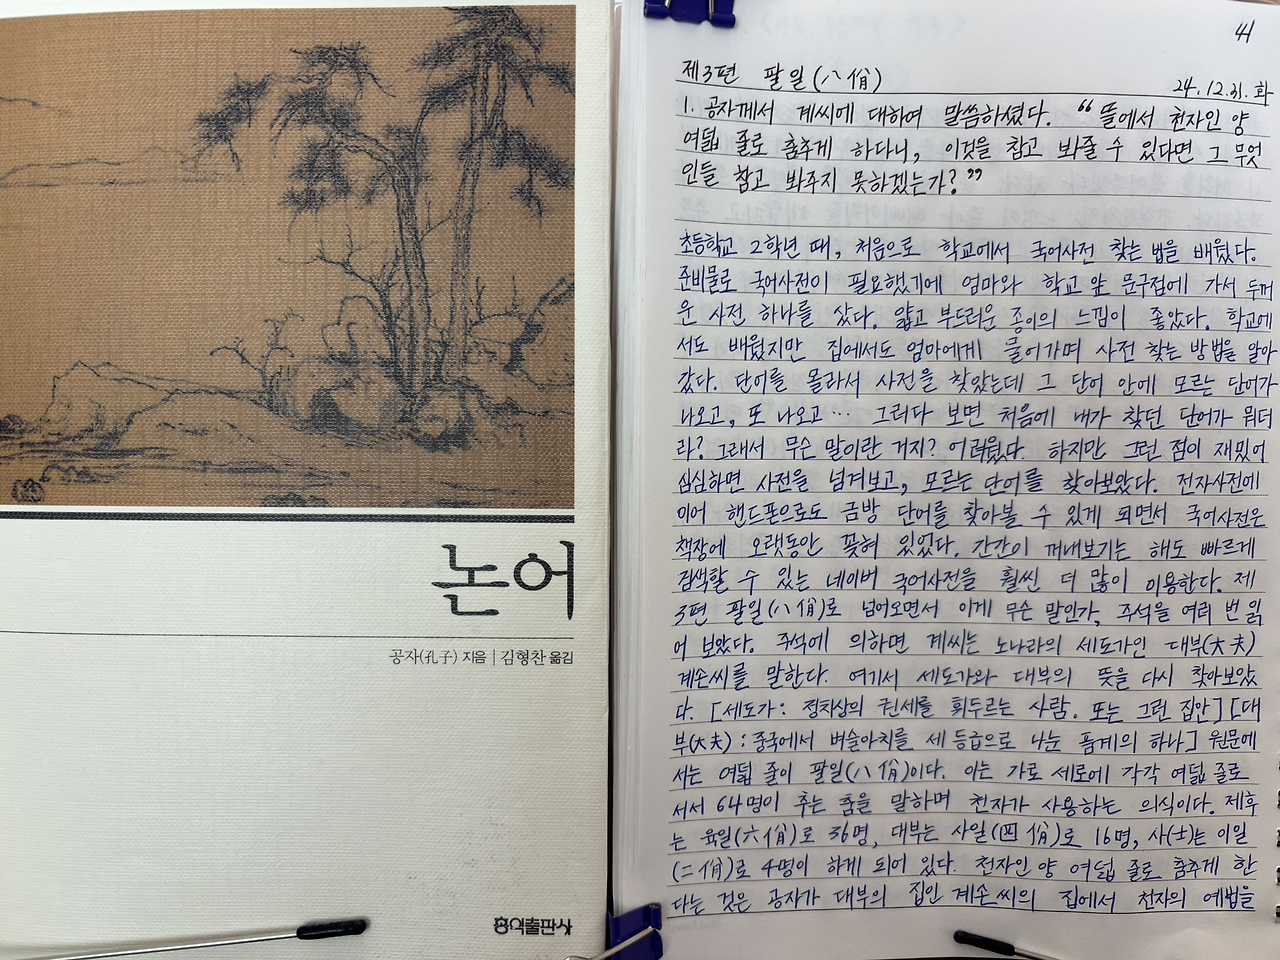 논어
공자(孔子) 지음 | 김형찬 옮김
홍익출판사
41
제3편 팔일(八佾)
24.12.31.화
1. 공자께서 계씨에 대하여 말씀하셨다. “뜰에서 천자인 양
여덟 줄로 춤추게 하다니, 이것을 참고 봐줄 수 있다면 그 무엇
인들 참고 봐주지 못하겠는가?”
초등학교 2학년 때, 처음으로 학교에서 국어사전 찾는 법을 배웠다.
준비물로 국어사전이 필요했기에 엄마와 학교 앞 문구점에 가서 두꺼
운 사전 하나를 샀다. 얇고 부드러운 종이의 느낌이 좋았다. 학교에
서도 배웠지만 집에서도 엄마에게 물어가며 사전 찾는 방법을 알아
갔다. 단어를 몰라서 사전을 찾았는데 그 단어 안에 모르는 단어가
나오고, 또 나오고… 그러다 보면 처음에 내가 찾던 단어가 뭐더
라? 그래서 무슨 말이란 거지? 어려웠다. 하지만 그런 점이 재밌어
심심하면 사전을 넘겨보고, 모르는 단어를 찾아보았다. 전자사전에
이어 핸드폰으로도 금방 단어를 찾아볼 수 있게 되면서 국어사전은
책장에 오랫동안 꽂혀 있었다. 간간이 꺼내보기는 해도 빠르게
검색할 수 있는 네이버 국어사전을 훨씬 더 많이 이용한다. 제
3편 팔일(八佾)로 넘어오면서 이게 무슨 말인가, 주석을 여러 번 읽
어 보았다. 주석에 의하면 계씨는 노나라의 세도가인 대부(大夫)
계손씨를 말한다. 여기서 세도가와 대부의 뜻을 다시 찾아보았
다. [세도가: 정치상의 권세를 휘두르는 사람. 또는 그런 집안] [대
부(大夫): 중국에서 벼슬아치를 세 등급으로 나눈 품계의 하나] 원문에
서는 여덟 줄이 팔일(八佾)이다. 이는 가로 세로에 각각 여덟 줄로
서서 64명이 추는 춤을 말하며 천자가 사용하는 의식이다. 제후
는 육일(六佾)로 36명, 대부는 사일(四佾)로 16명, 사(士)는 이일
(二佾)로 4명이 하게 되어 있다. 천자인 양 여덟 줄로 춤추게 한
다는 것은 공자가 대부의 집안 계손씨의 집에서 천자의 예법을